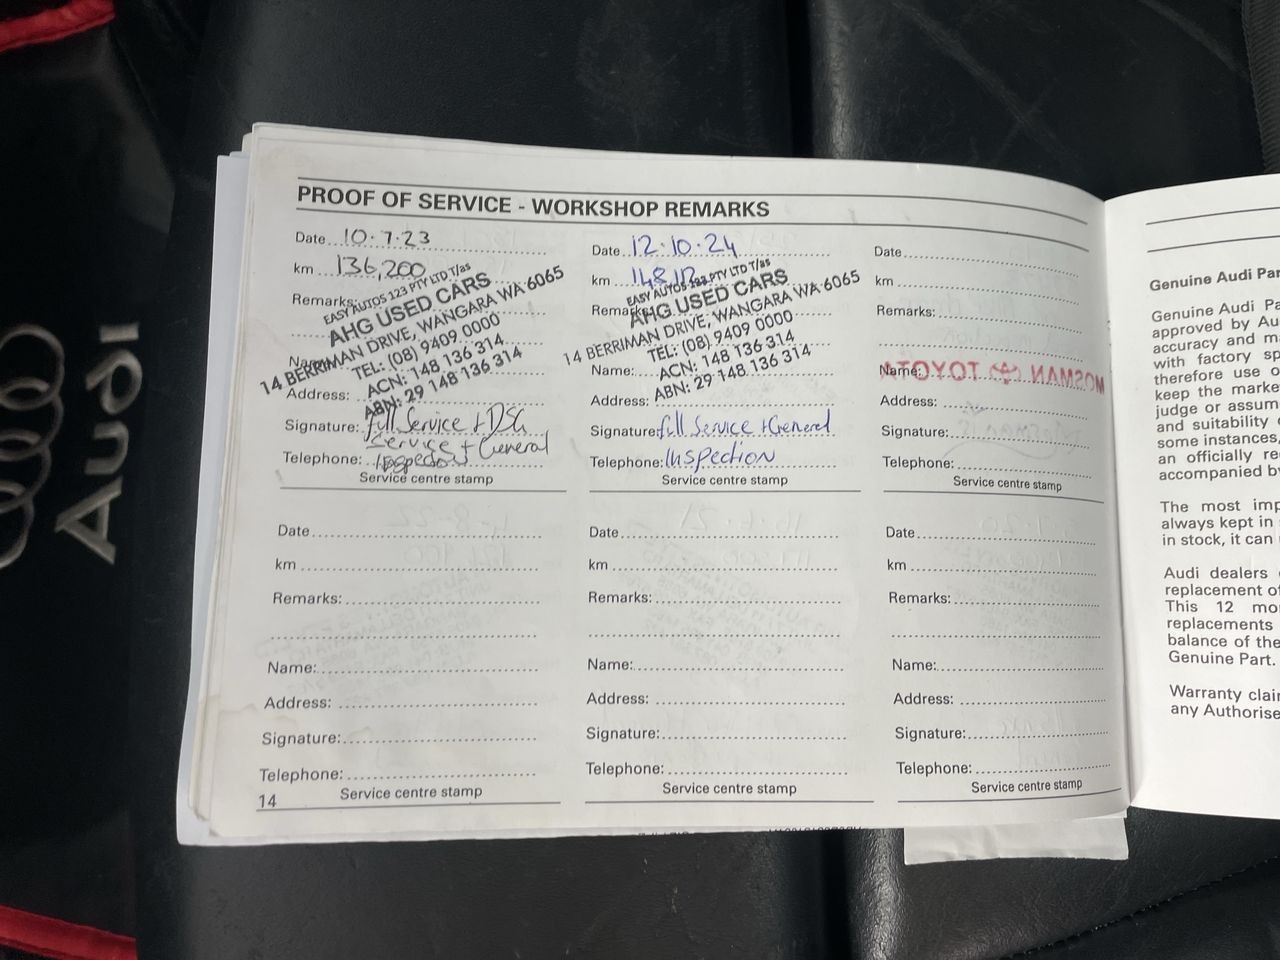 PROOF OF SERVICE - WORKSHOP REMARKS
Date 10.7.23
km 136,200
Remarks:
EASY AUTOS 123 PTY LTD T/as
AHG USED CARS
14 BERRIMAN DRIVE, WANGARA WA 6065
TEL: (08) 9409 0000
ACN: 148 136 314
ABN: 29 148 136 314
Name:
Address:
Signature: full Service + DSG
Service + General
Telephone: Inspection
Service centre stamp
Date 12.10.24
km
EASY AUTOS 123 PTY LTD T/as
Remarks:
AHG USED CARS
14 BERRIMAN DRIVE, WANGARA WA 6065
TEL: (08) 9409 0000
ACN: 148 136 314
ABN: 29 148 136 314
Name:
Address:
Signature: full Service + General
Telephone: Inspection
Service centre stamp
Date
km
Remarks:
Name:
MOSMAN TOYOTA
Address:
Signature:
Telephone:
Service centre stamp
Date
km
Remarks:
Name:
Address:
Signature:
Telephone:
Service centre stamp
Date
km
Remarks:
Name:
Address:
Signature:
Telephone:
Service centre stamp
Date
km
Remarks:
Name:
Address:
Signature:
Telephone:
Service centre stamp
14
Genuine Audi Par
Genuine Audi Pa
approved by Au
accuracy and ma
with factory sp
therefore use o
keep the marke
judge or assum
and suitability o
some instances,
an officially re
accompanied by
The most imp
always kept in s
in stock, it can
Audi dealers
replacement of
This 12 mo
replacements
balance of the
Genuine Part.
Warranty clair
any Authorise
Audi